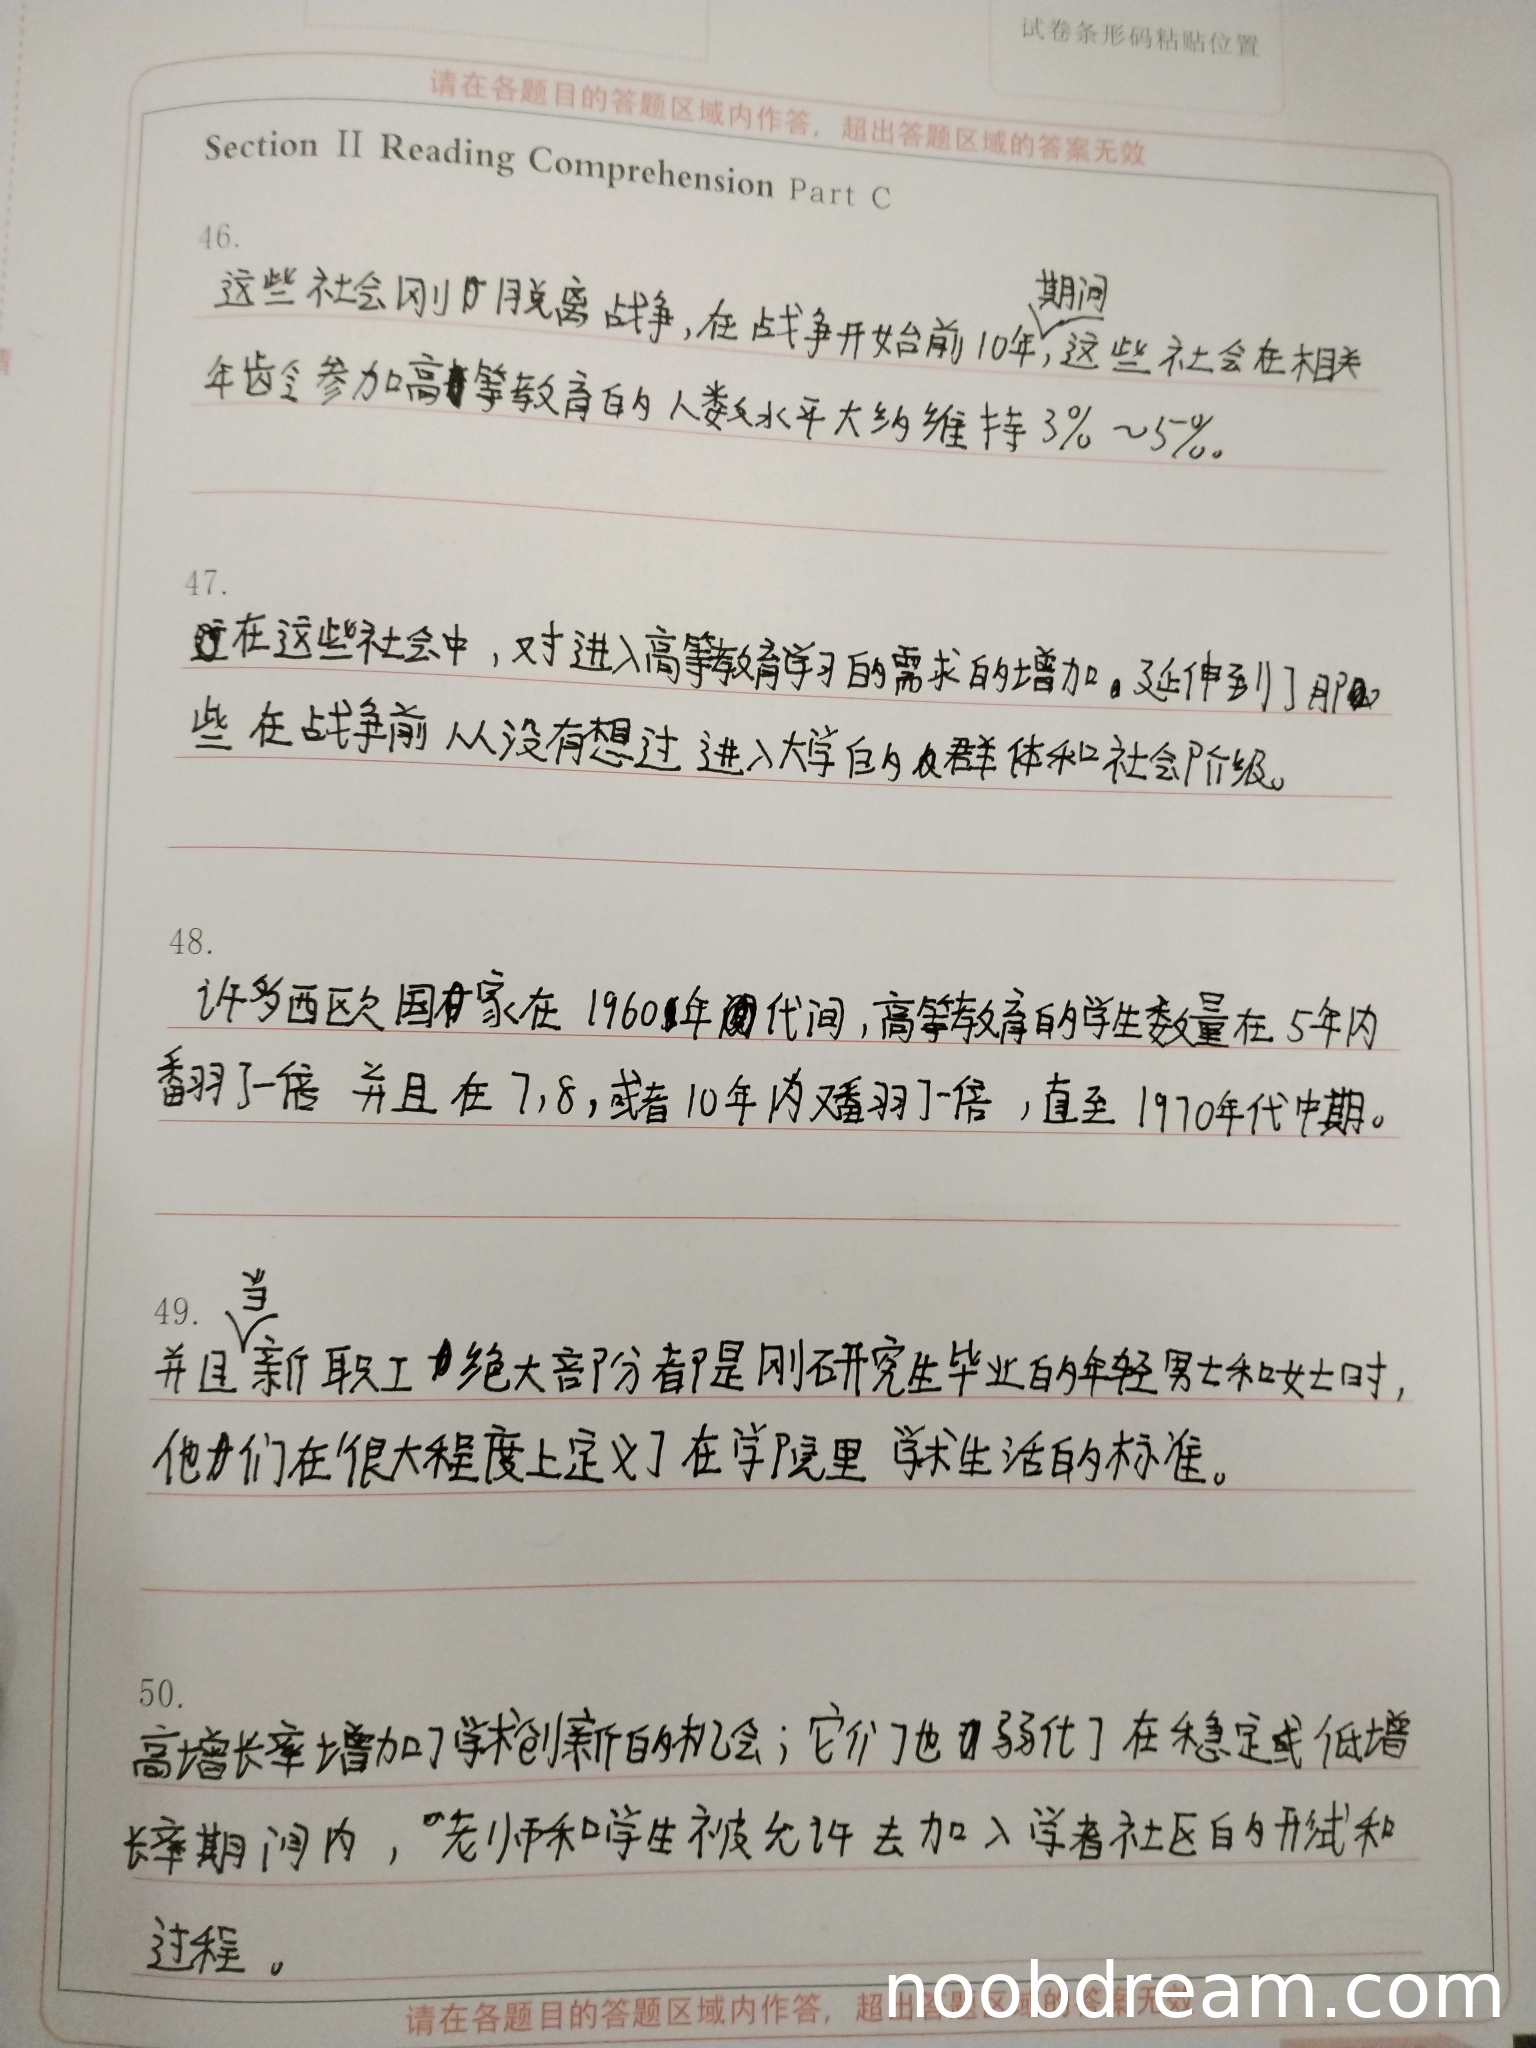 试卷条形码粘贴位置
请在各题目的答题区域内作答，超出答题区域的答案无效
Section Ⅱ Reading Comprehension Part C
46.
期间
这些社会刚脱离战争,在战争开始前10年,这些社会在相关
年龄参加高等教育的人数水平大约维持3%~5%。
47.
在这些社会中,对进入高等教育学习的需求的增加。延伸到了那
些在战争前从没有想过进入大学的群体和社会阶级。
48.
许多西欧国家在1960年代间,高等教育的学生数量在5年内
翻了一倍 并且在7,8,或者10年内又翻了一倍,直至1970年代中期。
当
49.
并且新职工绝大部分都是刚研究生毕业的年轻男士和女士时,
他们在很大程度上定义了在学院里 学术生活的标准。
50.
高增长率增加了学术创新的机会;它们也弱化了在稳定或低增
长率期间内,老师和学生被允许去加入学者社区的形式和
过程。
请在各题目的答题区域内作答，超出答题区域的答案无效
noobdream.com